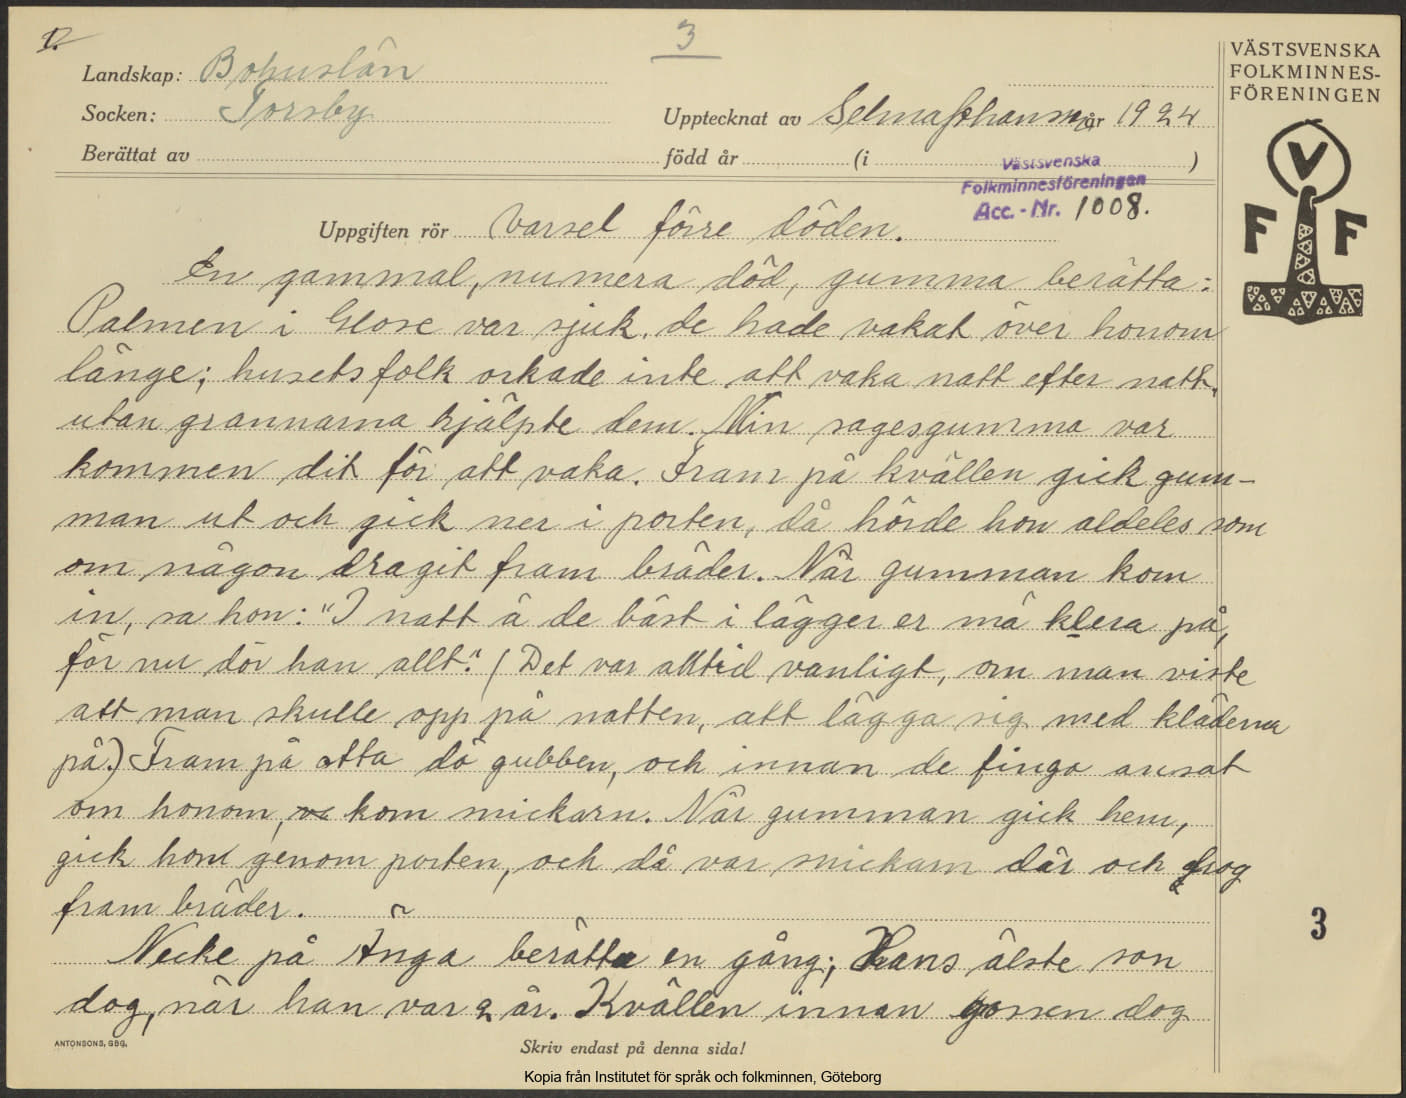 1.
3
VÄSTSVENSKA
FOLKMINNES-
FÖRENINGEN
Landskap: Bohuslän
Socken: Torsby
Upptecknat av Selma Johansson år 1924
Berättat av född år (i )
Västsvenska
Folkminnesföreningen
Acc.-Nr. 1008.
V
F F
Uppgiften rör Varsel förre döden.
En gammal, numera död, gumma berätta:
Palmen i Glose var sjuk. de hade vakat över honom
länge; husets folk orkade inte att vaka natt efter natt,
utan grannarna hjälpte dem. Min sagesgumma var
kommen dit för att vaka. Fram på kvällen gick gum-
man ut och gick ner i porten, då hörde hon aldeles som
om någon dragit fram bräder. När gumman kom
in, sa hon: "I natt ä de bäst i lägger er mä klera på,
för nu dör han allt." (Det var alltid vanligt, om man viste
att man skulle opp på natten, att lägga sig med kläderna
på.) Fram på otta dö gubben, och innan de fingo ansat
om honom, kom snickarn. När gumman gick hem,
gick hon genom porten, och då var snickarn där och drog
fram bräder.
3
Necke på Änga berätta en gång; Hans älste son
dog, när han var 2 år. Kvällen innan gossen dog
ANTONSONS, GBG.
Skriv endast på denna sida!
Kopia från Institutet för språk och folkminnen, Göteborg